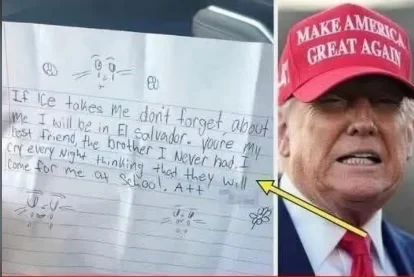 If Ice takes me don't forget about
me I will be in El Salvador. youre my
best friend, the brother I Never had. I
cry every Night thinking that they will
come for me at School. Att
MAKE AMERICA
GREAT AGAIN